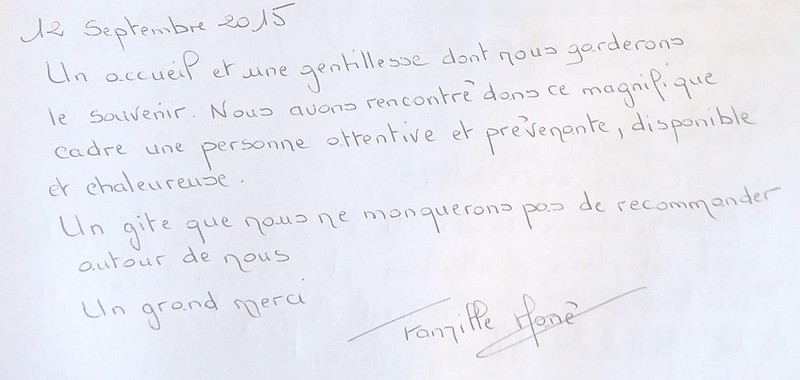 12 Septembre 2015
Un accueil et une gentillesse dont nous garderons
le souvenir. Nous avons rencontré dans ce magnifique
cadre une personne attentive et prévenante, disponible
et chaleureuse.
Un gite que nous ne manquerons pas de recommander
autour de nous
Un grand merci
Famille